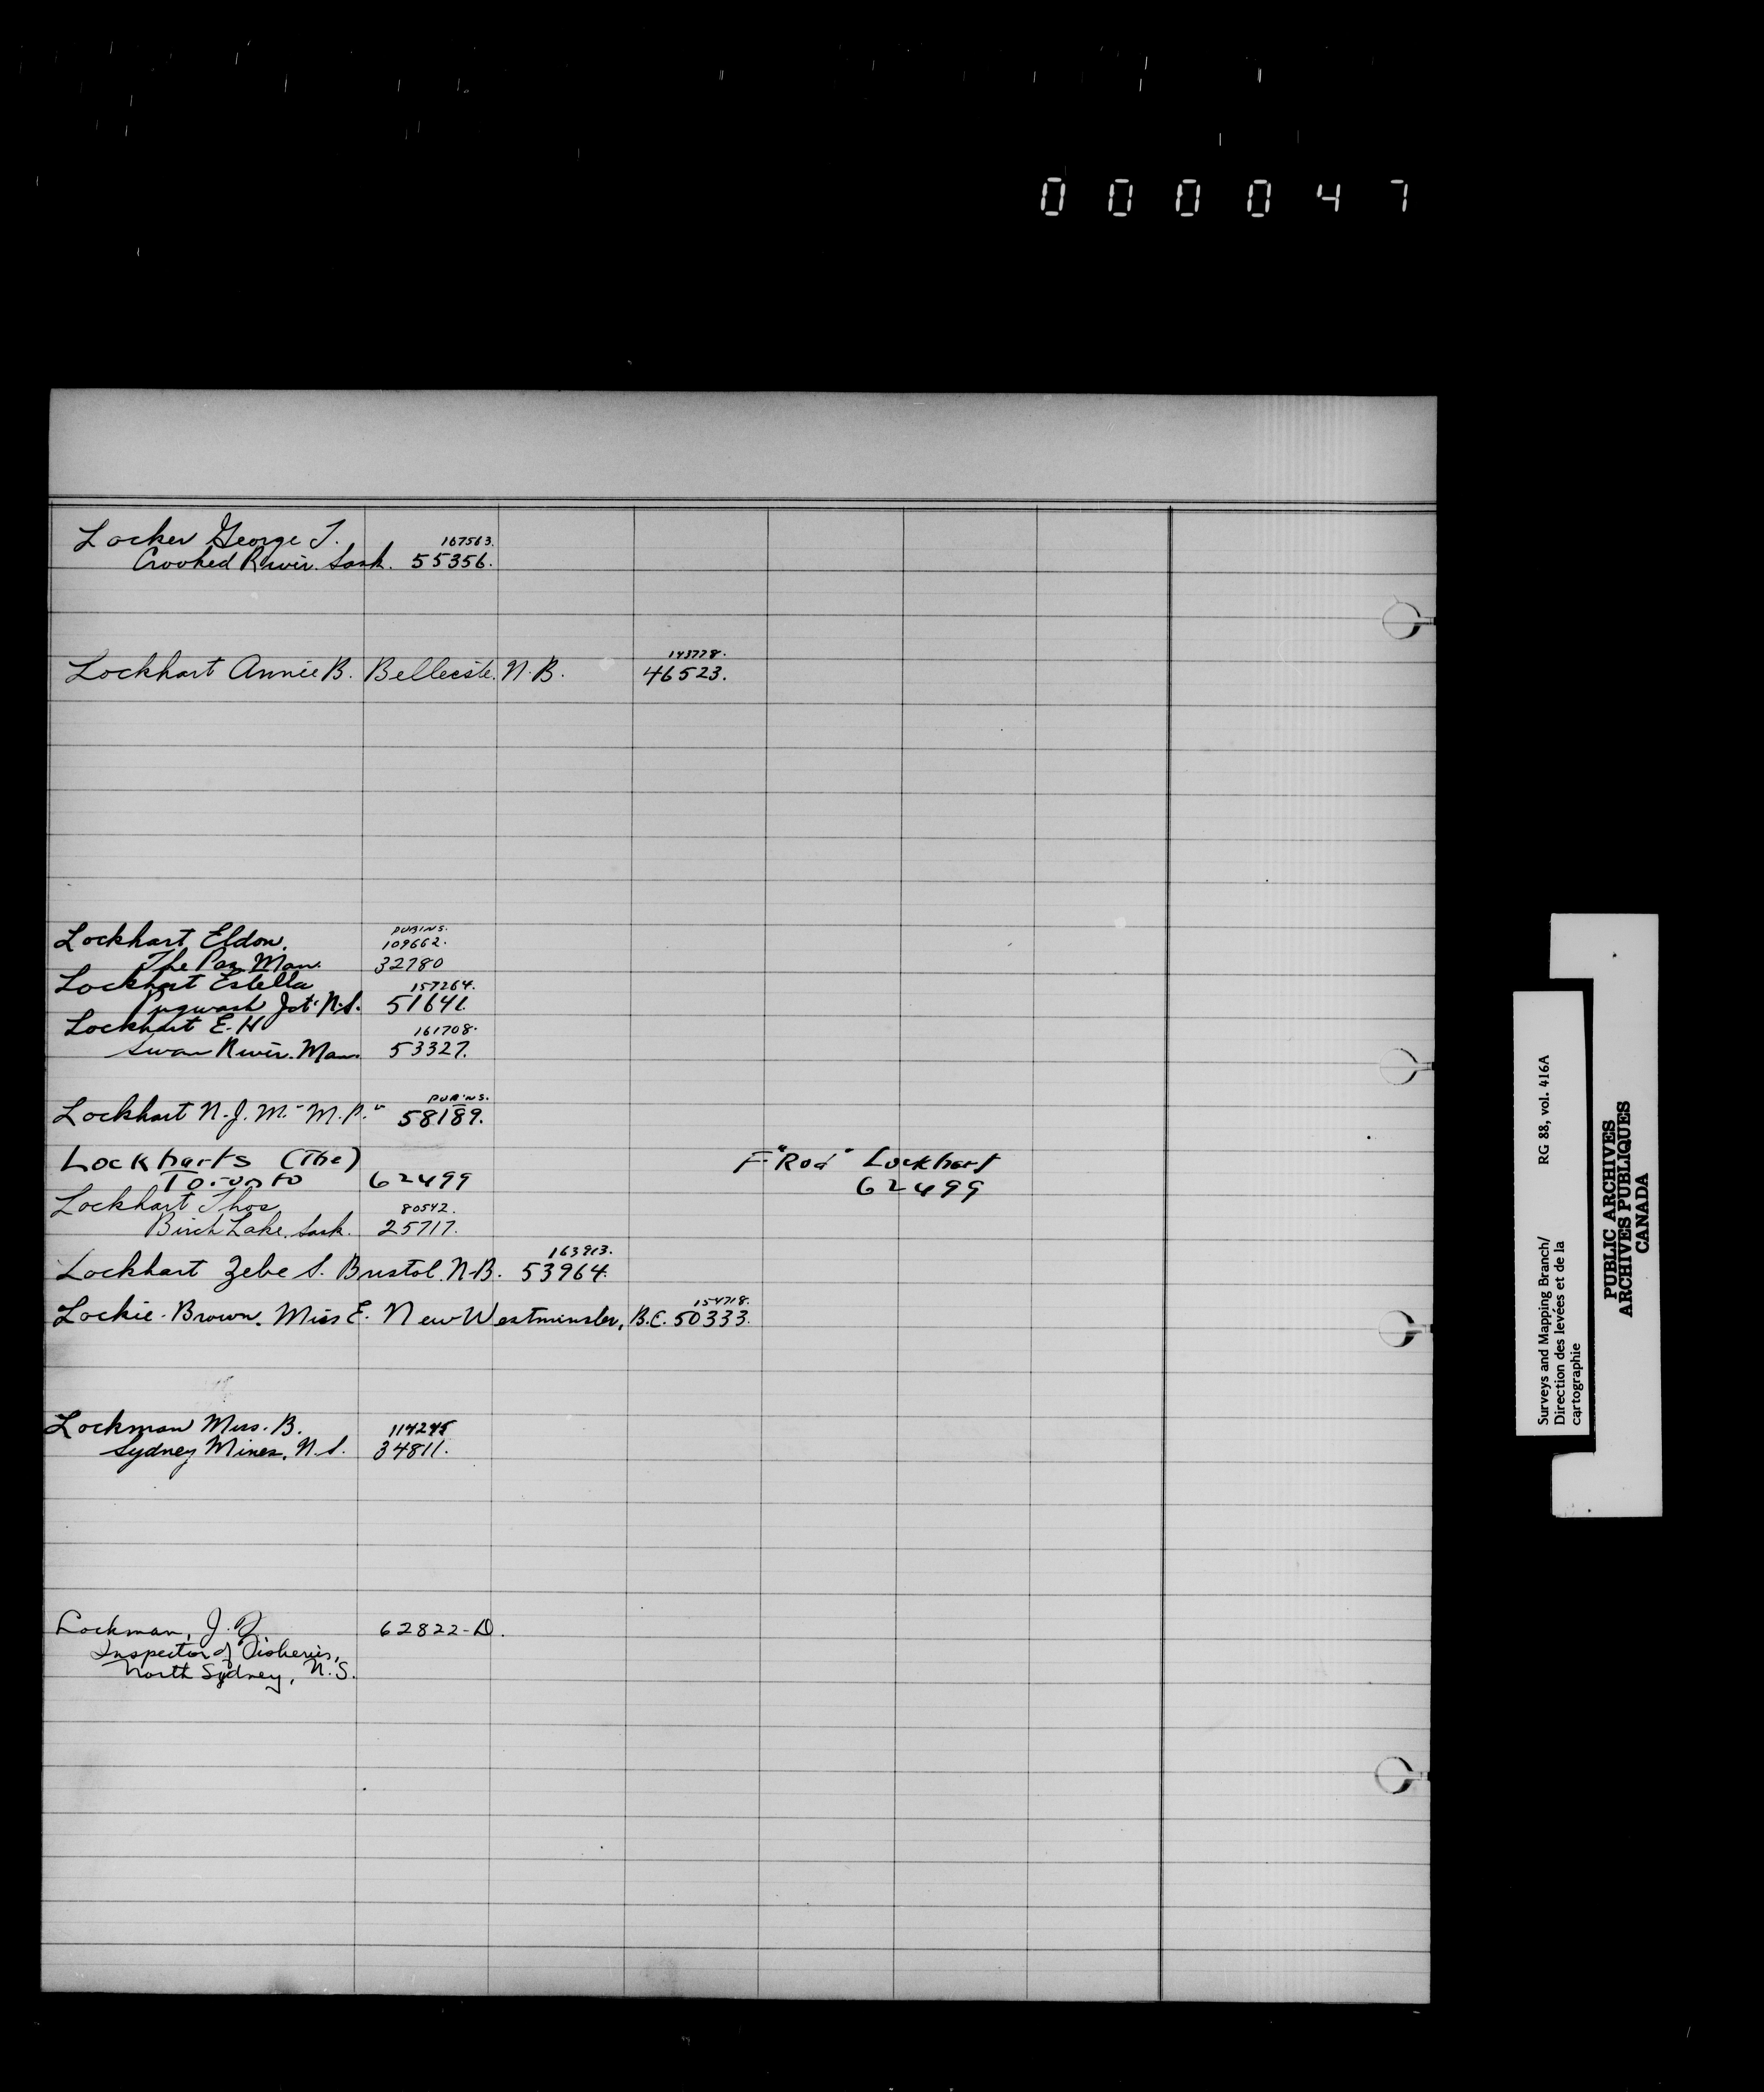 0 0 0 0 4 7
Locker George T. 167563.
Crooked River. Sask. 55356.
143778.
Lockhart Annie B. N.B. 46523.
Lockhart Eldon. PUBINS. 109662.
The Pas Man. 32780
Lockhart Estella 157264.
Pugwash Jct. N.S. 51641.
Lockhart E. H 161708.
Swan River. Man. 53327.
Lockhart N. J. M. "M.P." 58189.
Lockharts (The) F. "Rod" Lockhart
Toronto 62499 62499
Lockhart Thos 80542.
Birch Lake. Sask. 25717.
163913.
Lockhart Zebe S. Bristol. N.B. 53964.
154718.
Lockie-Brown. Miss E. New Westminster, B.C. 50333.
Lockman Miss. B.
Sydney Mines, N.S. 34811.
Lockman, J. 62822-D.
Inspector of Fisheries,
North Sydney, N.S.
Surveys and Mapping Branch/ RG 88, vol. 416A
Direction des levées et de la
cartographie
PUBLIC ARCHIVES
ARCHIVES PUBLIQUES
CANADA